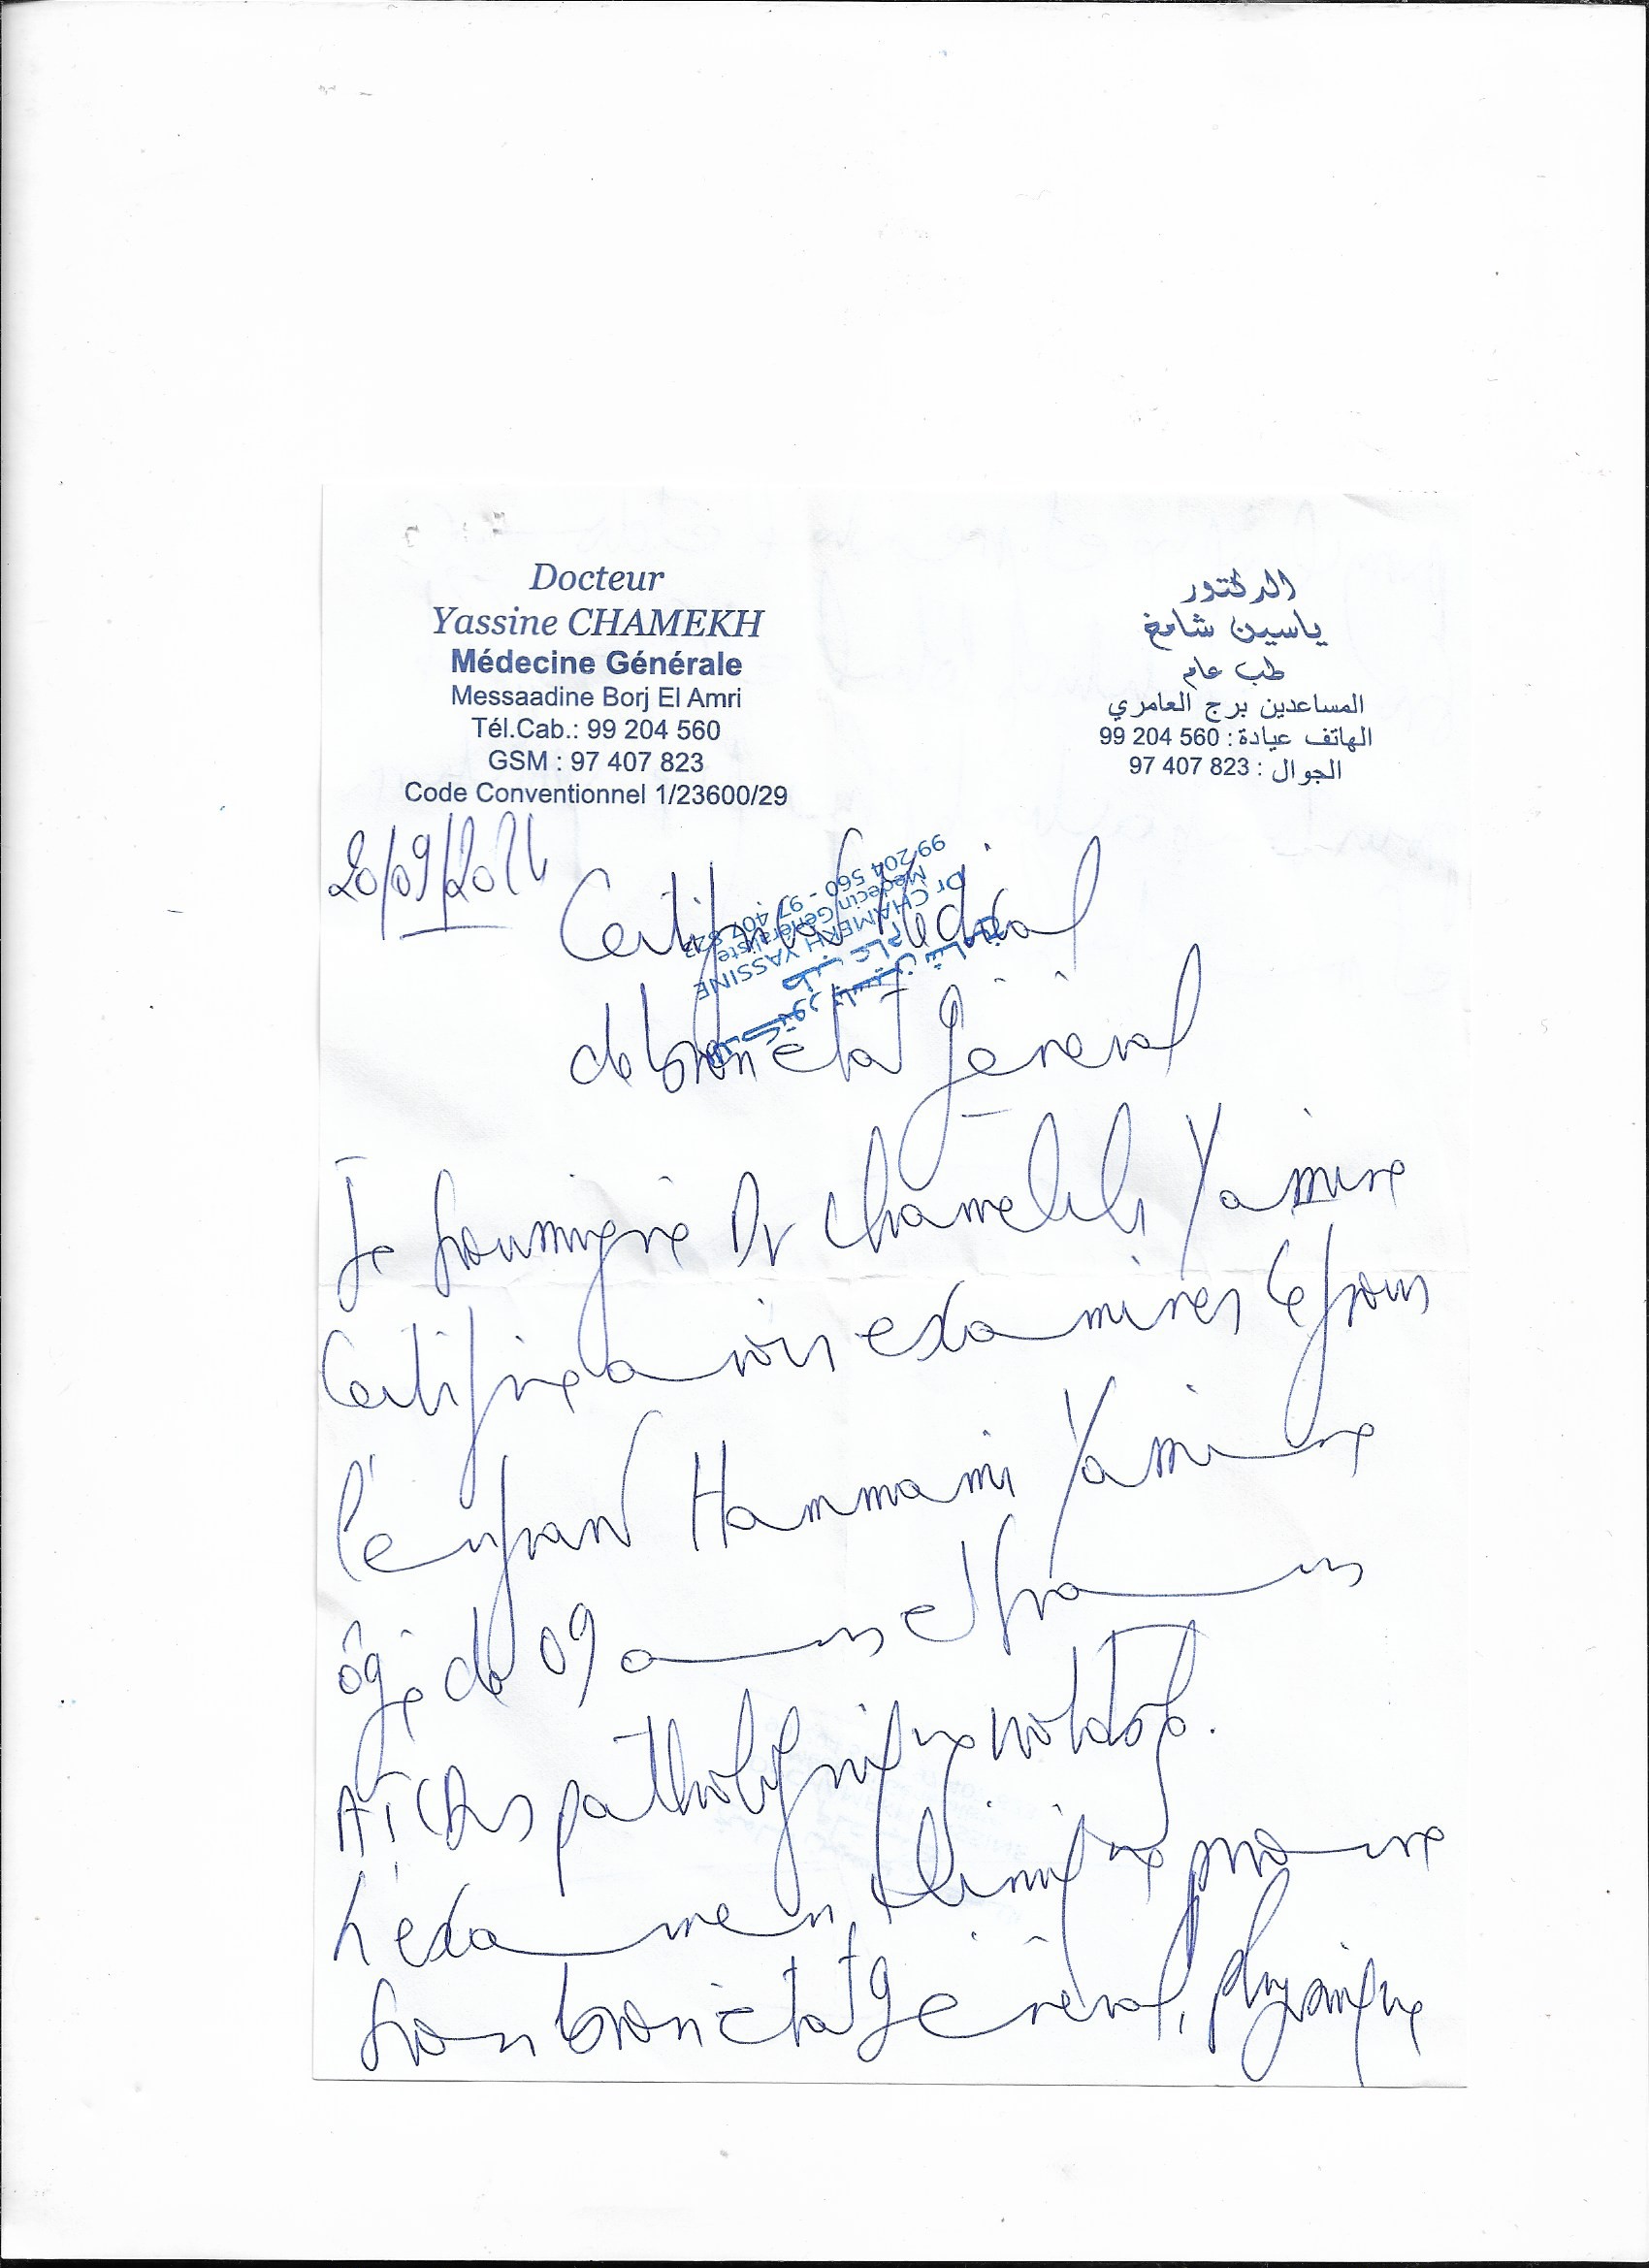 Docteur
Yassine CHAMEKH
Médecine Générale
Messaadine Borj El Amri
Tél.Cab.: 99 204 560
GSM : 97 407 823
Code Conventionnel 1/23600/29
الدكتور
ياسين شامخ
طب عام
المساعدين برج العامري
الهاتف عيادة : 99 204 560
الجوال : 97 407 823
20/09/2024
Certificat Médical
de bon état général
الدكتور ياسين شامخ
طب عام
Dr CHAMEKH YASSINE
Médecin Généraliste
99 204 560 - 97 407 823
Je soussigné Dr Chamekh Yassine
Certifie avoir examiner ce jour
l'enfant Hammami Yassine
âgé de 09 ans et sans
ATCDs pathologique notable.
L'examen clinique prouve
son bon état général, physique